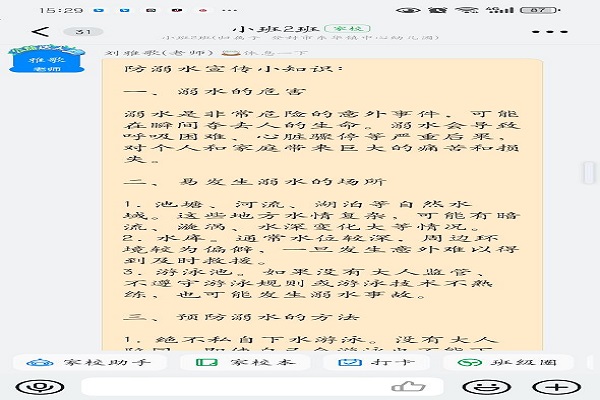 15:29
4G
87
31
小班2班
家校
小班2班(归属于
镇中心幼儿园)
雅歌
老师
刘雅歌(老师)
休息一下
防溺水宣传小知识:
一、溺水的危害
溺水是非常危险的意外事件,可能
在瞬间夺去人的生命。溺水会导致
呼吸困难、心脏骤停等严重后果,
对个人和家庭带来巨大的痛苦和损
失。
二、易发生溺水的场所
1. 池塘、河流、湖泊等自然水
域。这些地方水情复杂,可能有暗
流、漩涡、水深变化大等情况。
2. 水库。通常水位较深,周边环
境较为偏僻,一旦发生意外难以得
到及时救援。
3. 游泳池。如果没有大人监管、
不遵守游泳规则或游泳技术不熟
练,也可能发生溺水事故。
三、预防溺水的方法
1. 绝不私自下水游泳。没有大人
陪同,即使自己会游泳也不能下
家校助手
家校本
打卡
班级圈